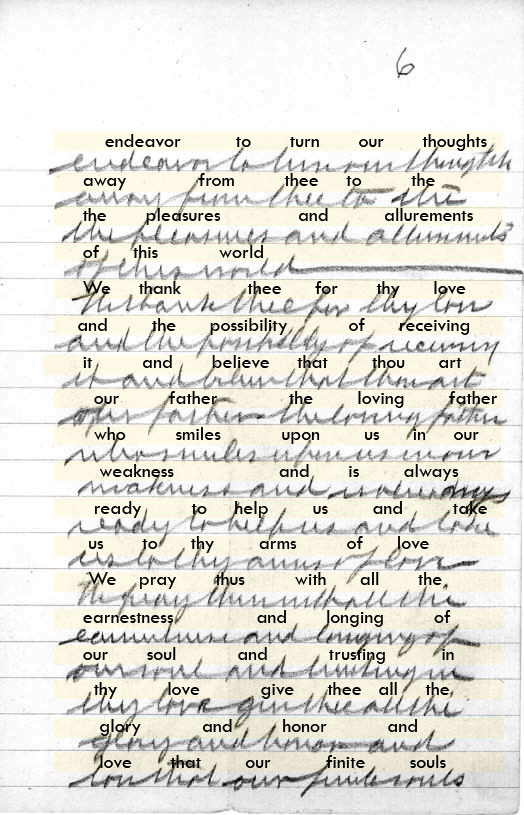 6
endeavor to turn our thoughts
endeavor to turn our thoughts
away from thee to the
away from thee to the
the pleasures and allurements
the pleasures and allurements
of this world
of this world
We thank thee for thy love
We thank thee for thy love
and the possibility of receiving
and the possibility of receiving
it and believe that thou art
it and believe that thou art
our father the loving father
our father the loving father
who smiles upon us in our
who smiles upon us in our
weakness and is always
weakness and is always
ready to help us and take
ready to help us and take
us to thy arms of love
us to thy arms of love
We pray thus with all the
We pray thus with all the
earnestness and longing of
earnestness and longing of
our soul and trusting in
our soul and trusting in
thy love give thee all the
thy love give thee all the
glory and honor and
glory and honor and
love that our finite souls
love that our finite souls